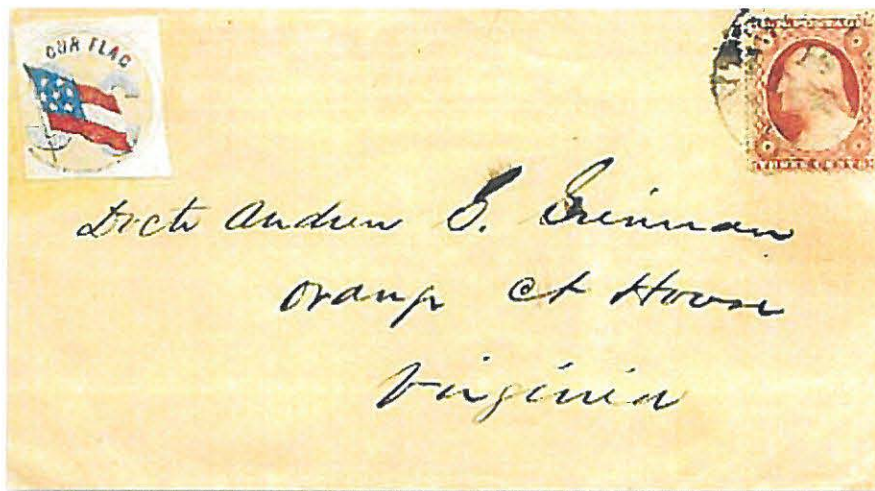 OUR FLAG
Doctr Andrew G. Grinnan
Orange Ct House
Virginia